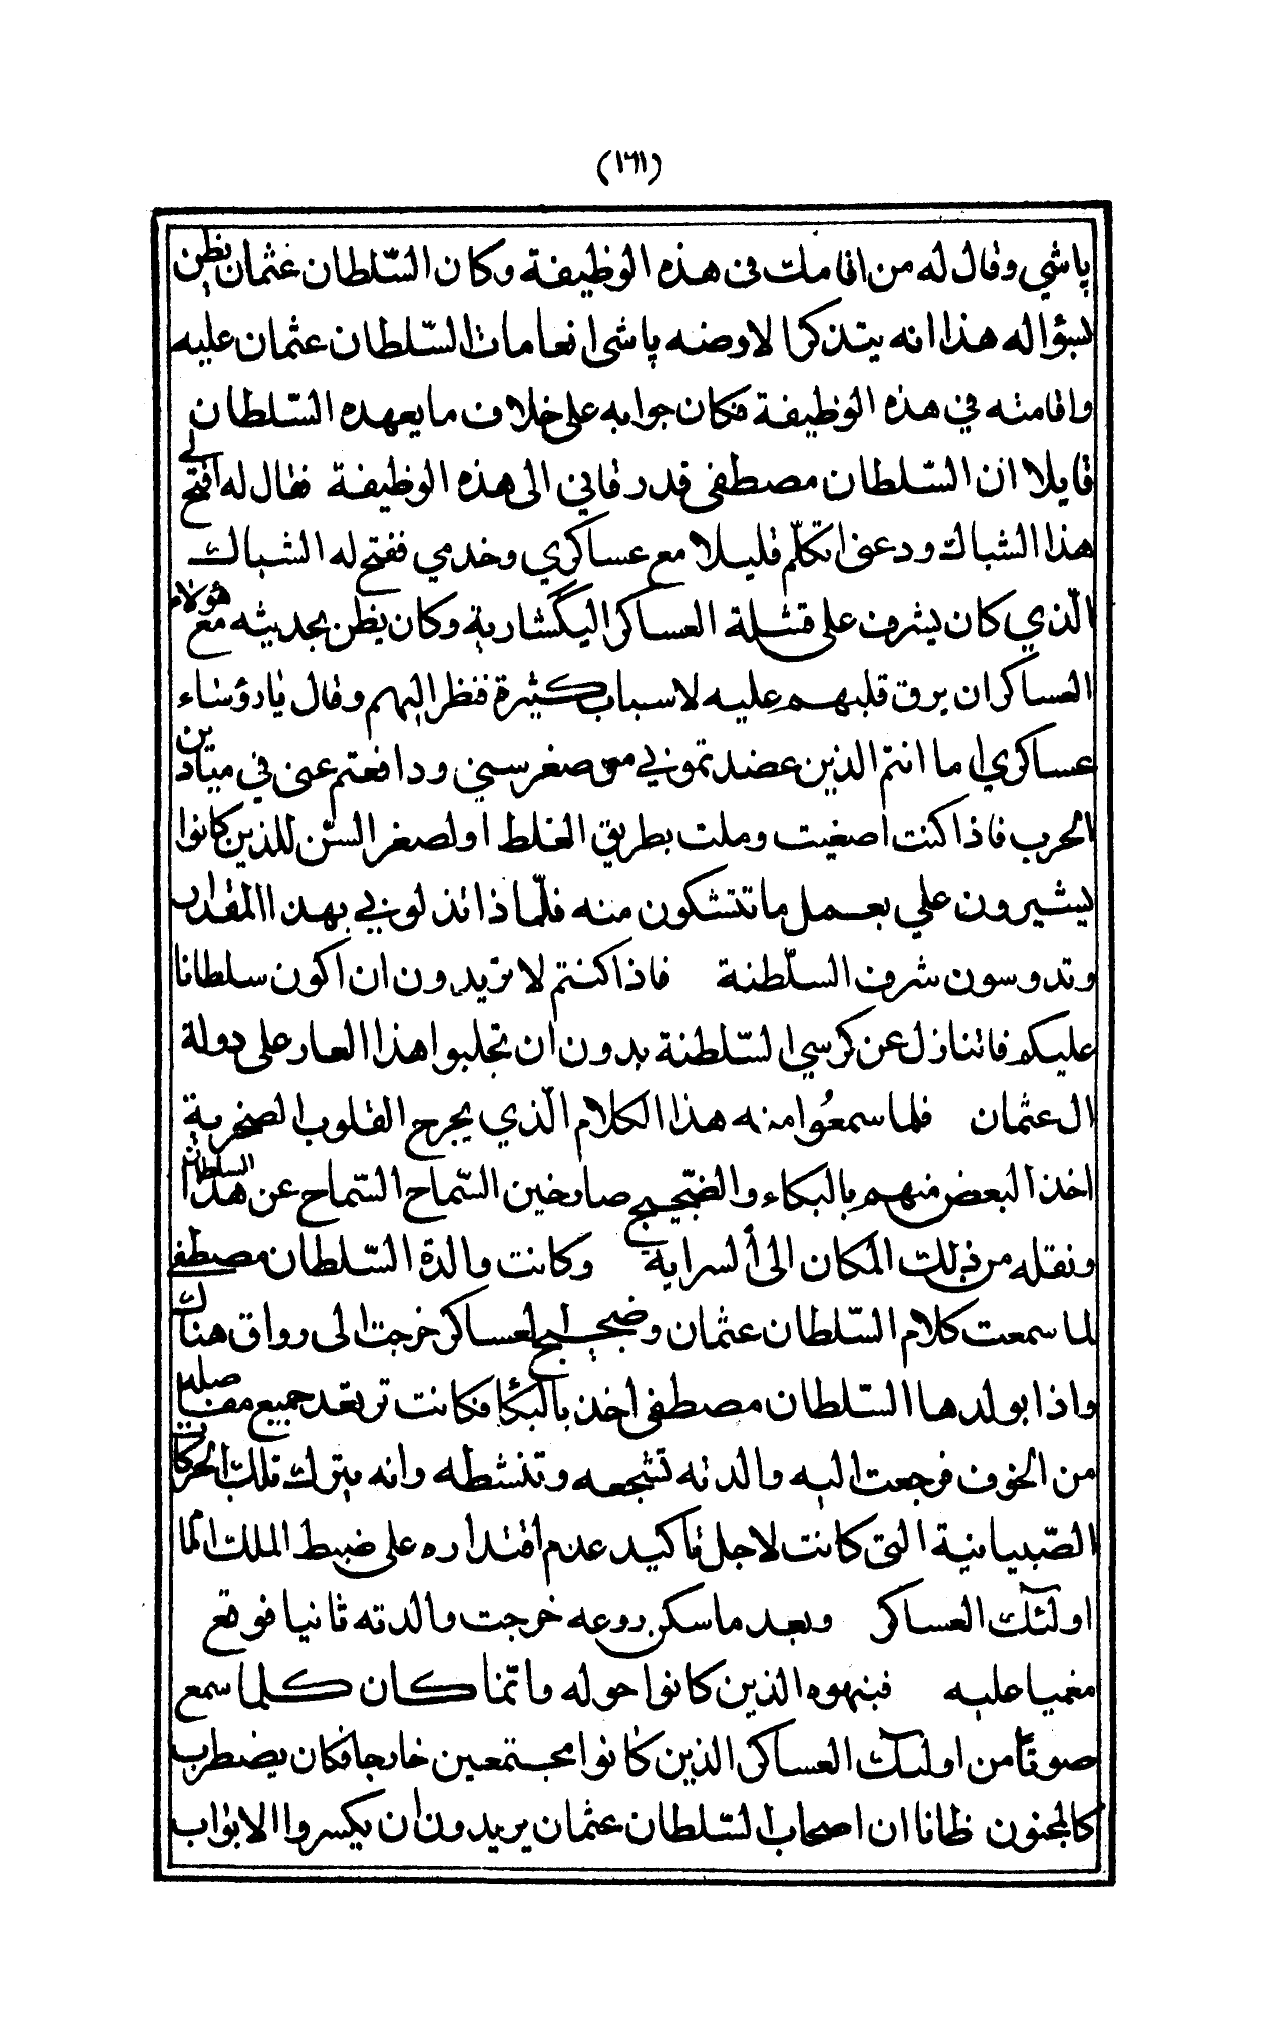 (١٦١)
پاشي وقال له من اقامك فى هذه الوظيفة وكان السّلطان عثمان يظن
بسؤاله هذا انه يتذكر الاوضه پاشى انعامات السّلطان عثمان عليه
واقامته في هذه الوظيفة فكان جوابه على خلاف ما يعهده السّلطان
قايلا ان السّلطان مصطفى قد رقاني الى هذه الوظيفة فقال له افتح لي
هذا الشباك ودعنى اتكلّم قليلا مع عساكري وخدمي ففتح له الشباك
الّذي كان يشرف على قشلة العساكر اليكشارية وكان يظن بحديثه مع هؤلاء
العساكر ان يرق قلبهم عليه لاسباب كثيرة فنظر اليهم وقال يا رؤساء
عساكري اما انتم الذين عضدتموني مع صغر سني ودافعتم عنى في ميادين
الحرب فاذا كنت اصغيت وملت بطريق الغلط او لصغر السّن للذين كانوا
يشيرون علي بعمل ما تتشكون منه فلمّاذا تذلوني بهذا المقدار
وتدوسون شرف السلّطنة فاذا كنتم لا تريدون ان اكون سلطانا
عليكم فاتنازل عن كرسي السّلطنة بدون ان تجلبوا هذا العار على دولة
ال عثمان فلما سمعُوا منه هذا الكلام الّذي يجرح القلوب الصخرية
اخذ البعض منهم بالبكاء والضّجيج صارخين السّماح السّماح عن هذا السلطان
ونقله من ذلك المكان الى السراية وكانت والدة السّلطان مصطفى
لما سمعت كلام السّلطان عثمان وضجيج العساكر خرجت الى رواق هناك
واذا بولدها السّلطان مصطفى اخذ بالبكأ فكانت ترتعد جميع مفاصله
من الخوف فرجعت اليه والدته تشجعه وتنشطه وانه يترك تلك الحركات
الصّبيانية التى كانت لاجل تاكيد عدم اقتداره على ضبط الملك امّا
اولئك العساكر وبعد ما سكن روعه خرجت والدته ثانيا فوقع
مغميا عليه فنبهوه الذين كانوا حوله وانّما كان كلما سمع
صوتًا من اولئك العساكر الذين كانوا مجتمعين خارجا فكان يضطرب
كالمجنون ظانا ان اصحاب السّلطان عثمان يريدون ان يكسروا الابواب